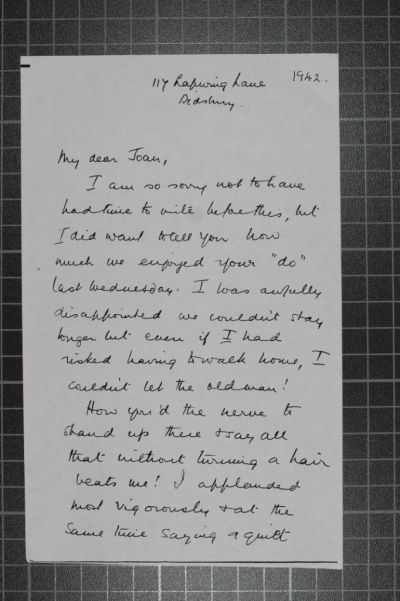 1942.
117 Lapwing Lane
Didsbury.
My dear Joan,
I am so sorry not to have
had time to write before this, but
I did want to tell you how
much we enjoyed your "do"
last Wednesday. I was awfully
disappointed we couldn't stay
longer but even if I had
risked having to walk home, I
couldn't let the old man!
How you'd the nerve to
stand up there & say all
that without turning a hair
beats me! I applauded
most vigorously & at the
same time saying a quiet